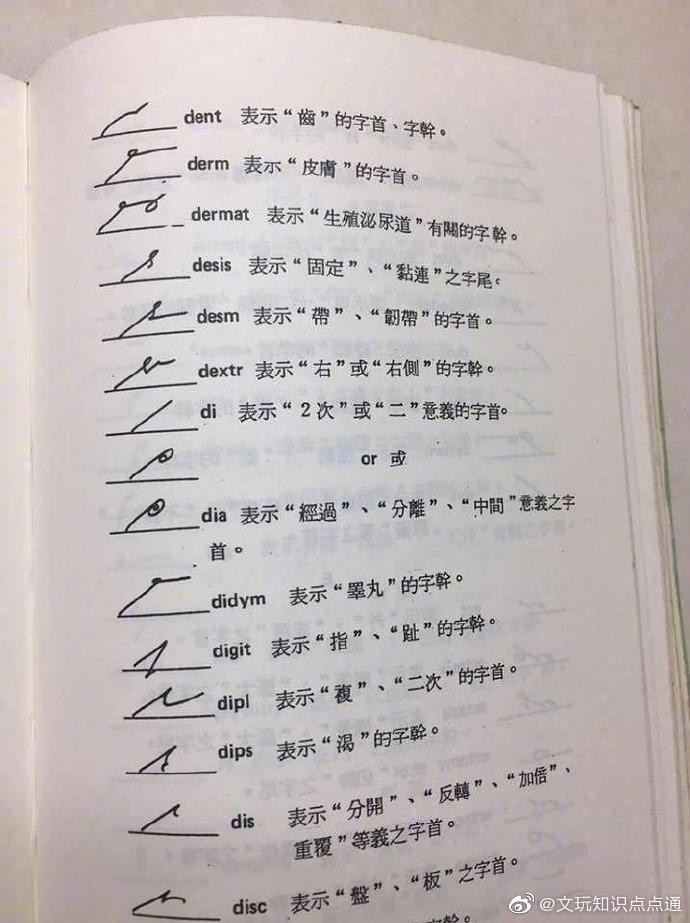 dent 表示“齒”的字首、字幹。
derm 表示“皮膚”的字首。
dermat 表示“生殖泌尿道”有關的字幹。
desis 表示“固定”、“黏連”之字尾。
desm 表示“帶”、“韌帶”的字首。
dextr 表示“右”或“右側”的字幹。
di 表示“2次”或“二”意義的字首。
or 或
dia 表示“經過”、“分離”、“中間”意義之字
首。
didym 表示“睪丸”的字幹。
digit 表示“指”、“趾”的字幹。
dipl 表示“複”、“二次”的字首。
dips 表示“渴”的字幹。
dis 表示“分開”、“反轉”、“加倍”、
重覆”等義之字首。
disc 表示“盤”、“板”之字首。
字幹。
@文玩知识点点通